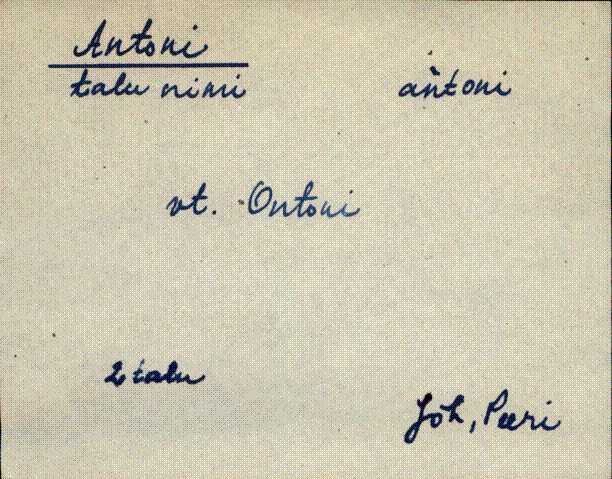 Antoni
talu nimi añtoni
vt. Ontoni
2 talu
Jõh, Peeri